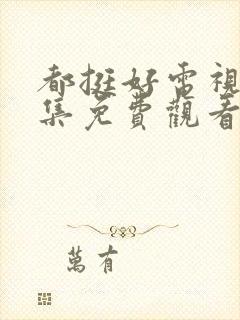 都挺好電視
集免費觀看
萬有